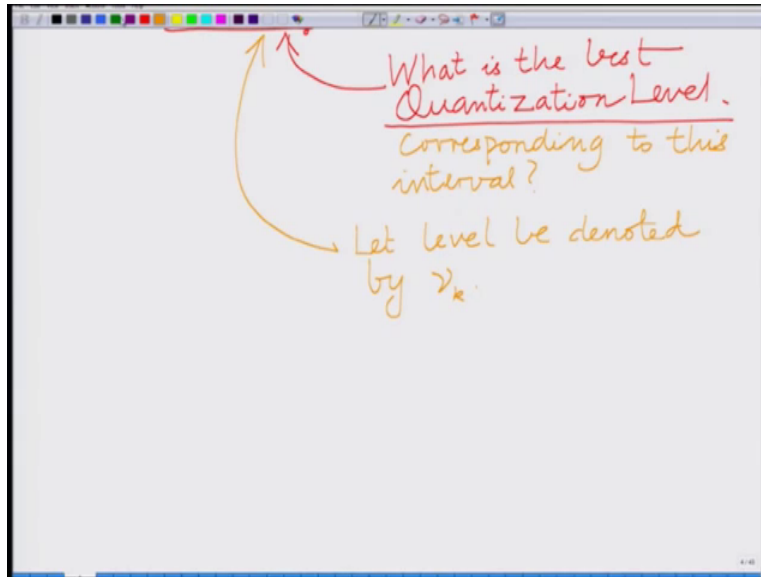 What is the best
Quantization Level.
Corresponding to this
interval?
Let level be denoted
by ν_k.
4/45